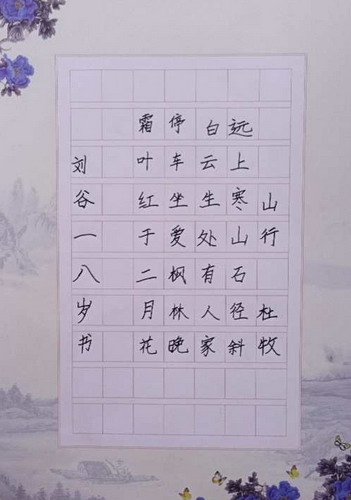 山行 杜牧
远上寒山石径斜
白云生处有人家
停车坐爱枫林晚
霜叶红于二月花
刘谷一八岁书